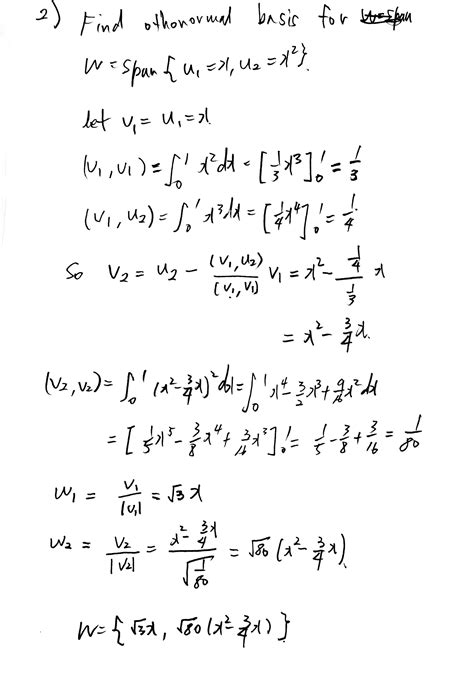 2) Find othonormal basis for
W = span { u₁ = x, u₂ = x² }.
let v₁ = u₁ = x.
(v₁, v₁) = ∫₀¹ x² dx = [1/3 x³]₀¹ = 1/3
(v₁, u₂) = ∫₀¹ x³ dx = [1/4 x⁴]₀¹ = 1/4
So v₂ = u₂ - (v₁, u₂)/(v₁, v₁) v₁ = x² - (1/4)/(1/3) x
= x² - 3/4 x.
(v₂, v₂) = ∫₀¹ (x² - 3/4 x)² dx = ∫₀¹ x⁴ - 3/2 x³ + 9/16 x² dx
= [1/5 x⁵ - 3/8 x⁴ + 3/16 x³]₀¹ = 1/5 - 3/8 + 3/16 = 1/80
w₁ = v₁/|v₁| = √3 x
w₂ = v₂/|v₂| = (x² - 3/4 x)/√(1/80) = √80 (x² - 3/4 x).
W = { √3x, √80 (x² - 3/4 x) }